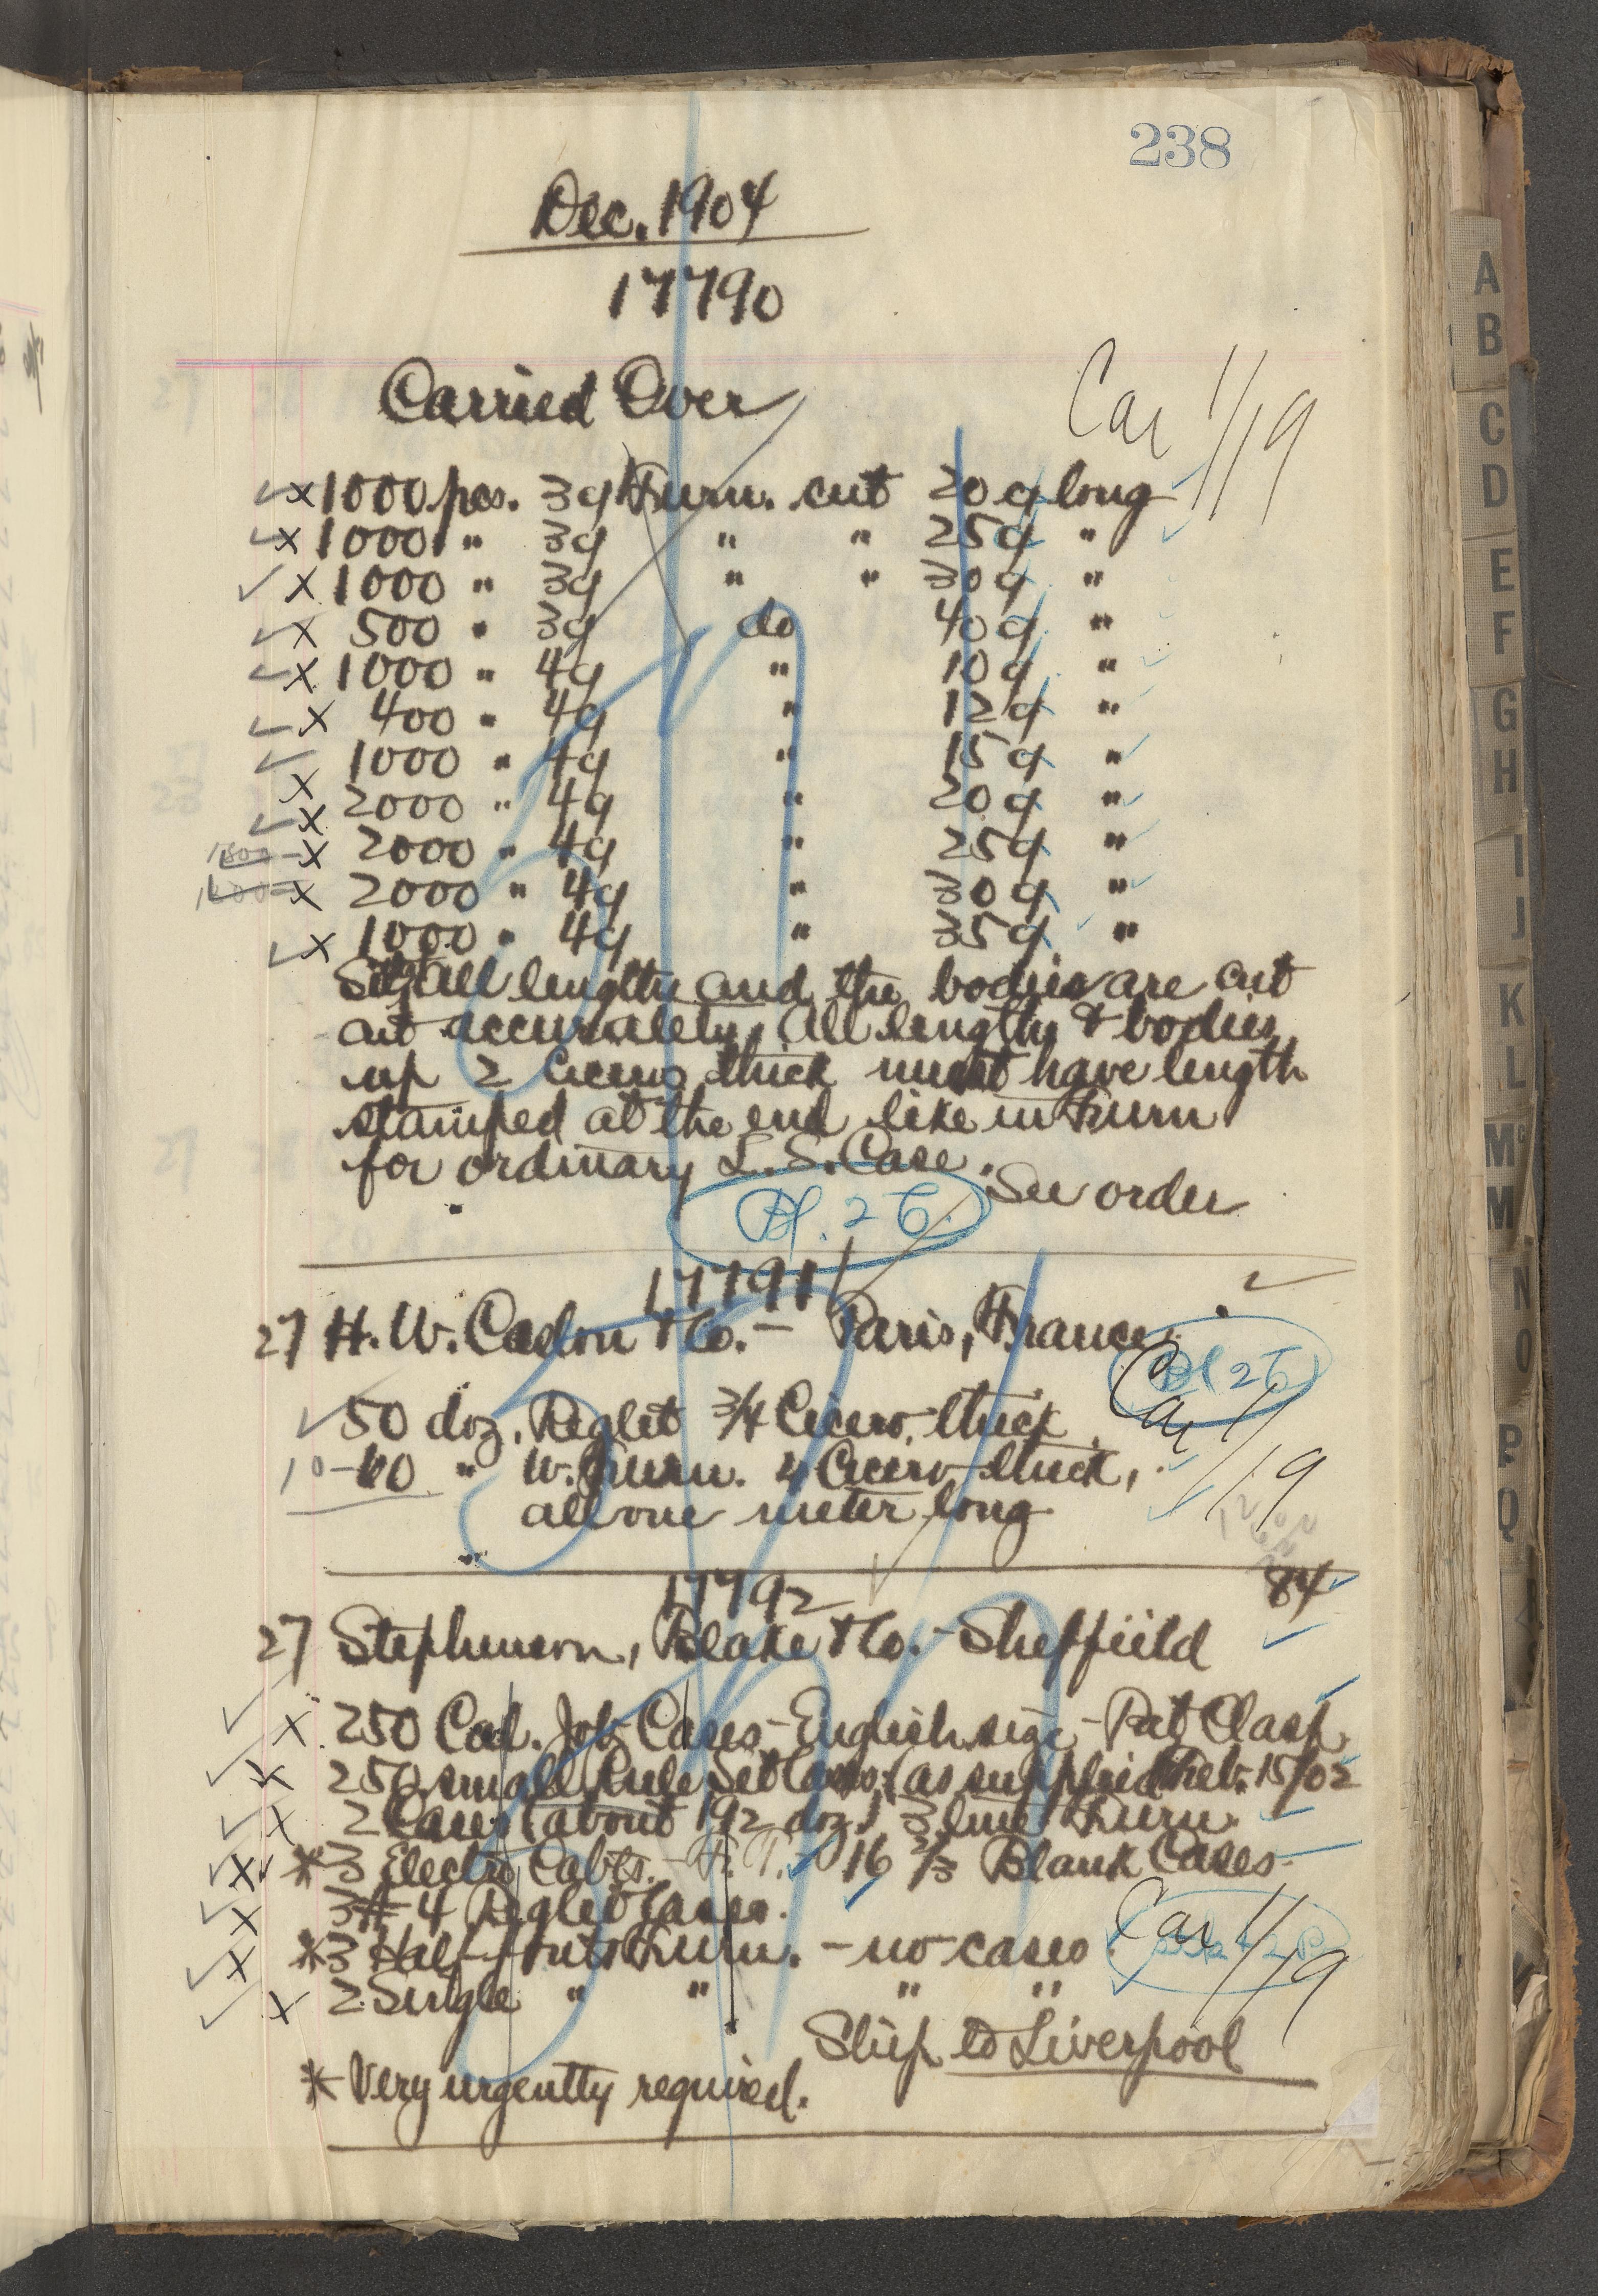 238
Dec. 1904
17790
Carried Over
Car 1/19
1000 pcs. 3g Furn. cut 20 g long
1000 " 3g " " 25g "
1000 " 3g " " 30g "
500 " 3g do 40g "
1000 " 4g " 10g "
400 " 4g " 12g "
1000 " 4g " 15g "
2000 " 4g " 20g "
2000 " 4g " 25g "
2000 " 4g " 30g "
1000 " 4g " 35g "
all lengths and the bodies are cut
cut accurately. All lengths & bodies
up 2 Cicero thick must have length
stamped at the end like in Furn
for ordinary L. S. Case.
See order
Bl. 26
17791
27 H. W. & Co. - Paris, France.
Bl 26
Car 1/19
50 doz. Reglet 3/4 Cicero thick
10 - 60 " W. Furn. 4 Cicero thick,
all one meter long
84
17792
27 Stephenson, Blake & Co. - Sheffield
250 Cal. Job Cases - English size - Pat Clasp
250 small Rule Set Cases (as supplied Feb. 15/02
2 Cases (about 192 doz.) 3 line Furn.
* 3 Electro Cabts. - 16 2/3 Blank Cases
3 # 4 Reglet Cases.
* 3 Half - Furn. - no cases
Car 1/19
2 Single " " " "
Ship to Liverpool
* Very urgently required.
A
B
C
D
E
F
G
H
I
J
K
L
M
M
N
O
P
Q